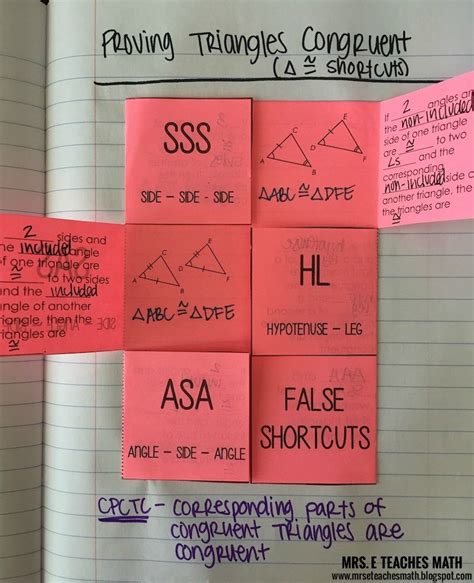 Proving Triangles Congruent
(△ ≅ shortcuts)
SSS
SIDE – SIDE – SIDE
C
A
B
E
D
F
△ABC ≅ △DFE
If 2 angles and
the non-included
side of one triangle
are ≅ to two
∠s and the
corresponding
non-included side
another triangle, the
the triangles are
≅
2 sides and
the included angle
of one triangle are
≅ to two sides
and the included
angle of another
triangle, then the
triangles are
≅
C
A
B
E
D
F
△ABC ≅ △DFE
HL
HYPOTENUSE – LEG
ASA
ANGLE – SIDE – ANGLE
FALSE
SHORTCUTS
CPCTC – Corresponding parts of
congruent triangles are
congruent
MRS. E TEACHES MATH
www.mrseteachesmath.blogspot.com